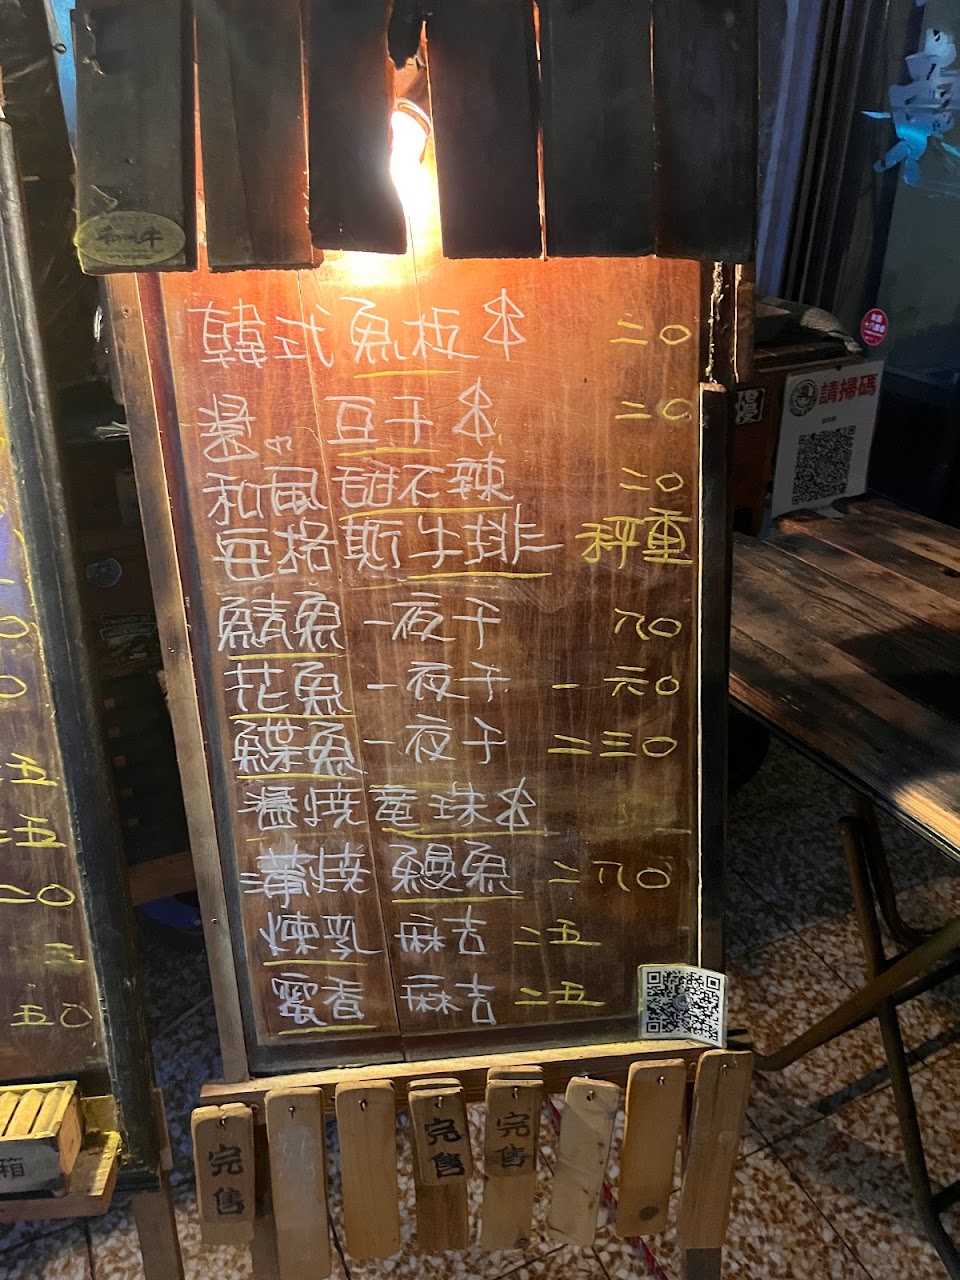 韓式魚板串 二〇
醬心豆干串 二〇
和風甜不辣 二〇
每格斯牛排 秤重
鯖魚一夜干 八〇
花魚一夜干 一六〇
鰈魚一夜干 二三〇
醬燒竜珠串
蒲燒鰻魚 二八〇
煉乳麻吉 二五
蜜香麻吉 二五
完售
完售
完售
請掃碼
五
二五
二〇
三
五〇
箱